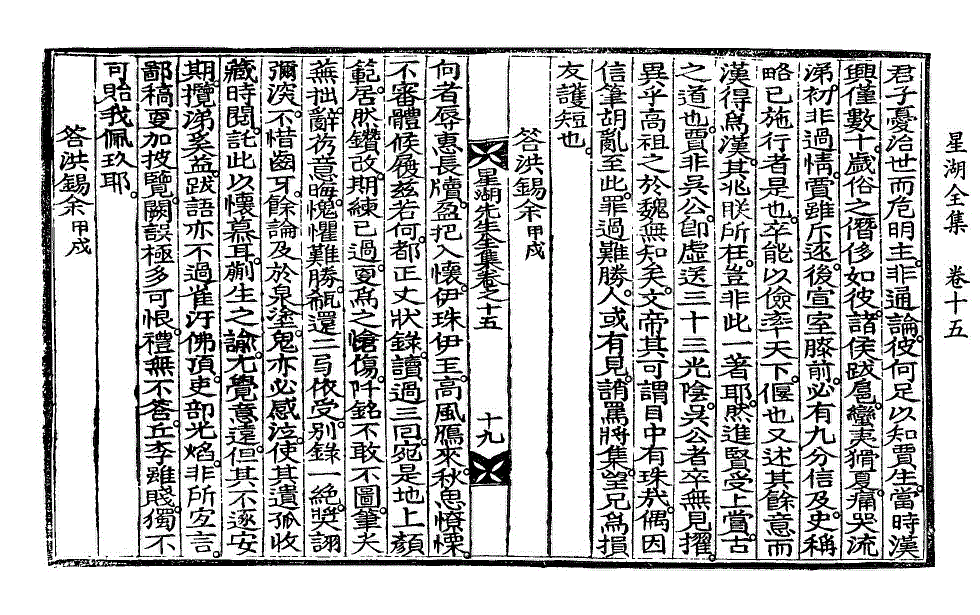 星湖全集　卷十五
君子憂治世而危明主。非通論。彼何足以知賈生。當時漢
興僅數十歲。俗之僭侈如彼。諸侯跋扈。蠻夷猾夏。痛哭流
涕。初非過情。嘗雖斥逐。後宣室膝前。必有九分信及。史稱
略已施行者是也。卒能以儉率天下。偃也又述其餘意而
漢得爲漢。其兆眹所在。豈非此一著耶。然進賢受上賞。古
之道也。賈非吳公。卽虛送三十三光陰。吳公者卒無見擢。
異乎高祖之於魏無知矣。文帝其可謂目中有珠哉。偶因
信筆胡亂至此。罪過難勝。人或有見。誚罵將集。望兄爲損
友護短也。
答洪錫余 甲戌
星湖先生全集卷之十五　十九
向者辱惠長牘。盈把入懷。伊珠伊玉。高風鴈來。秋思憭慄。
不審體候履玆若何。都正丈狀錄。讀過三回。宛是地上顏
範。居然鑽改。期練已過。更爲之愴傷。阡銘不敢不圖。筆夫
蕪拙。辭仍意晦。愧懼難勝。瓻還二弓依受。別錄一絶。奬詡
彌深。不惜齒牙。餘論及於泉塗。鬼亦必感泣。使其遺孤收
藏時閱。託此以懷慕耳。蒯生之諭。尤覺意遠。但其不逐安
期攬涕奚益。跋語亦不過雀汙佛頂。吏部光焰。非所宜言。
鄙稿更加披覽。闕誤極多可恨。禮無不答。丘李雖賤。獨不
可貽我佩玖耶。
答洪錫余 甲戌